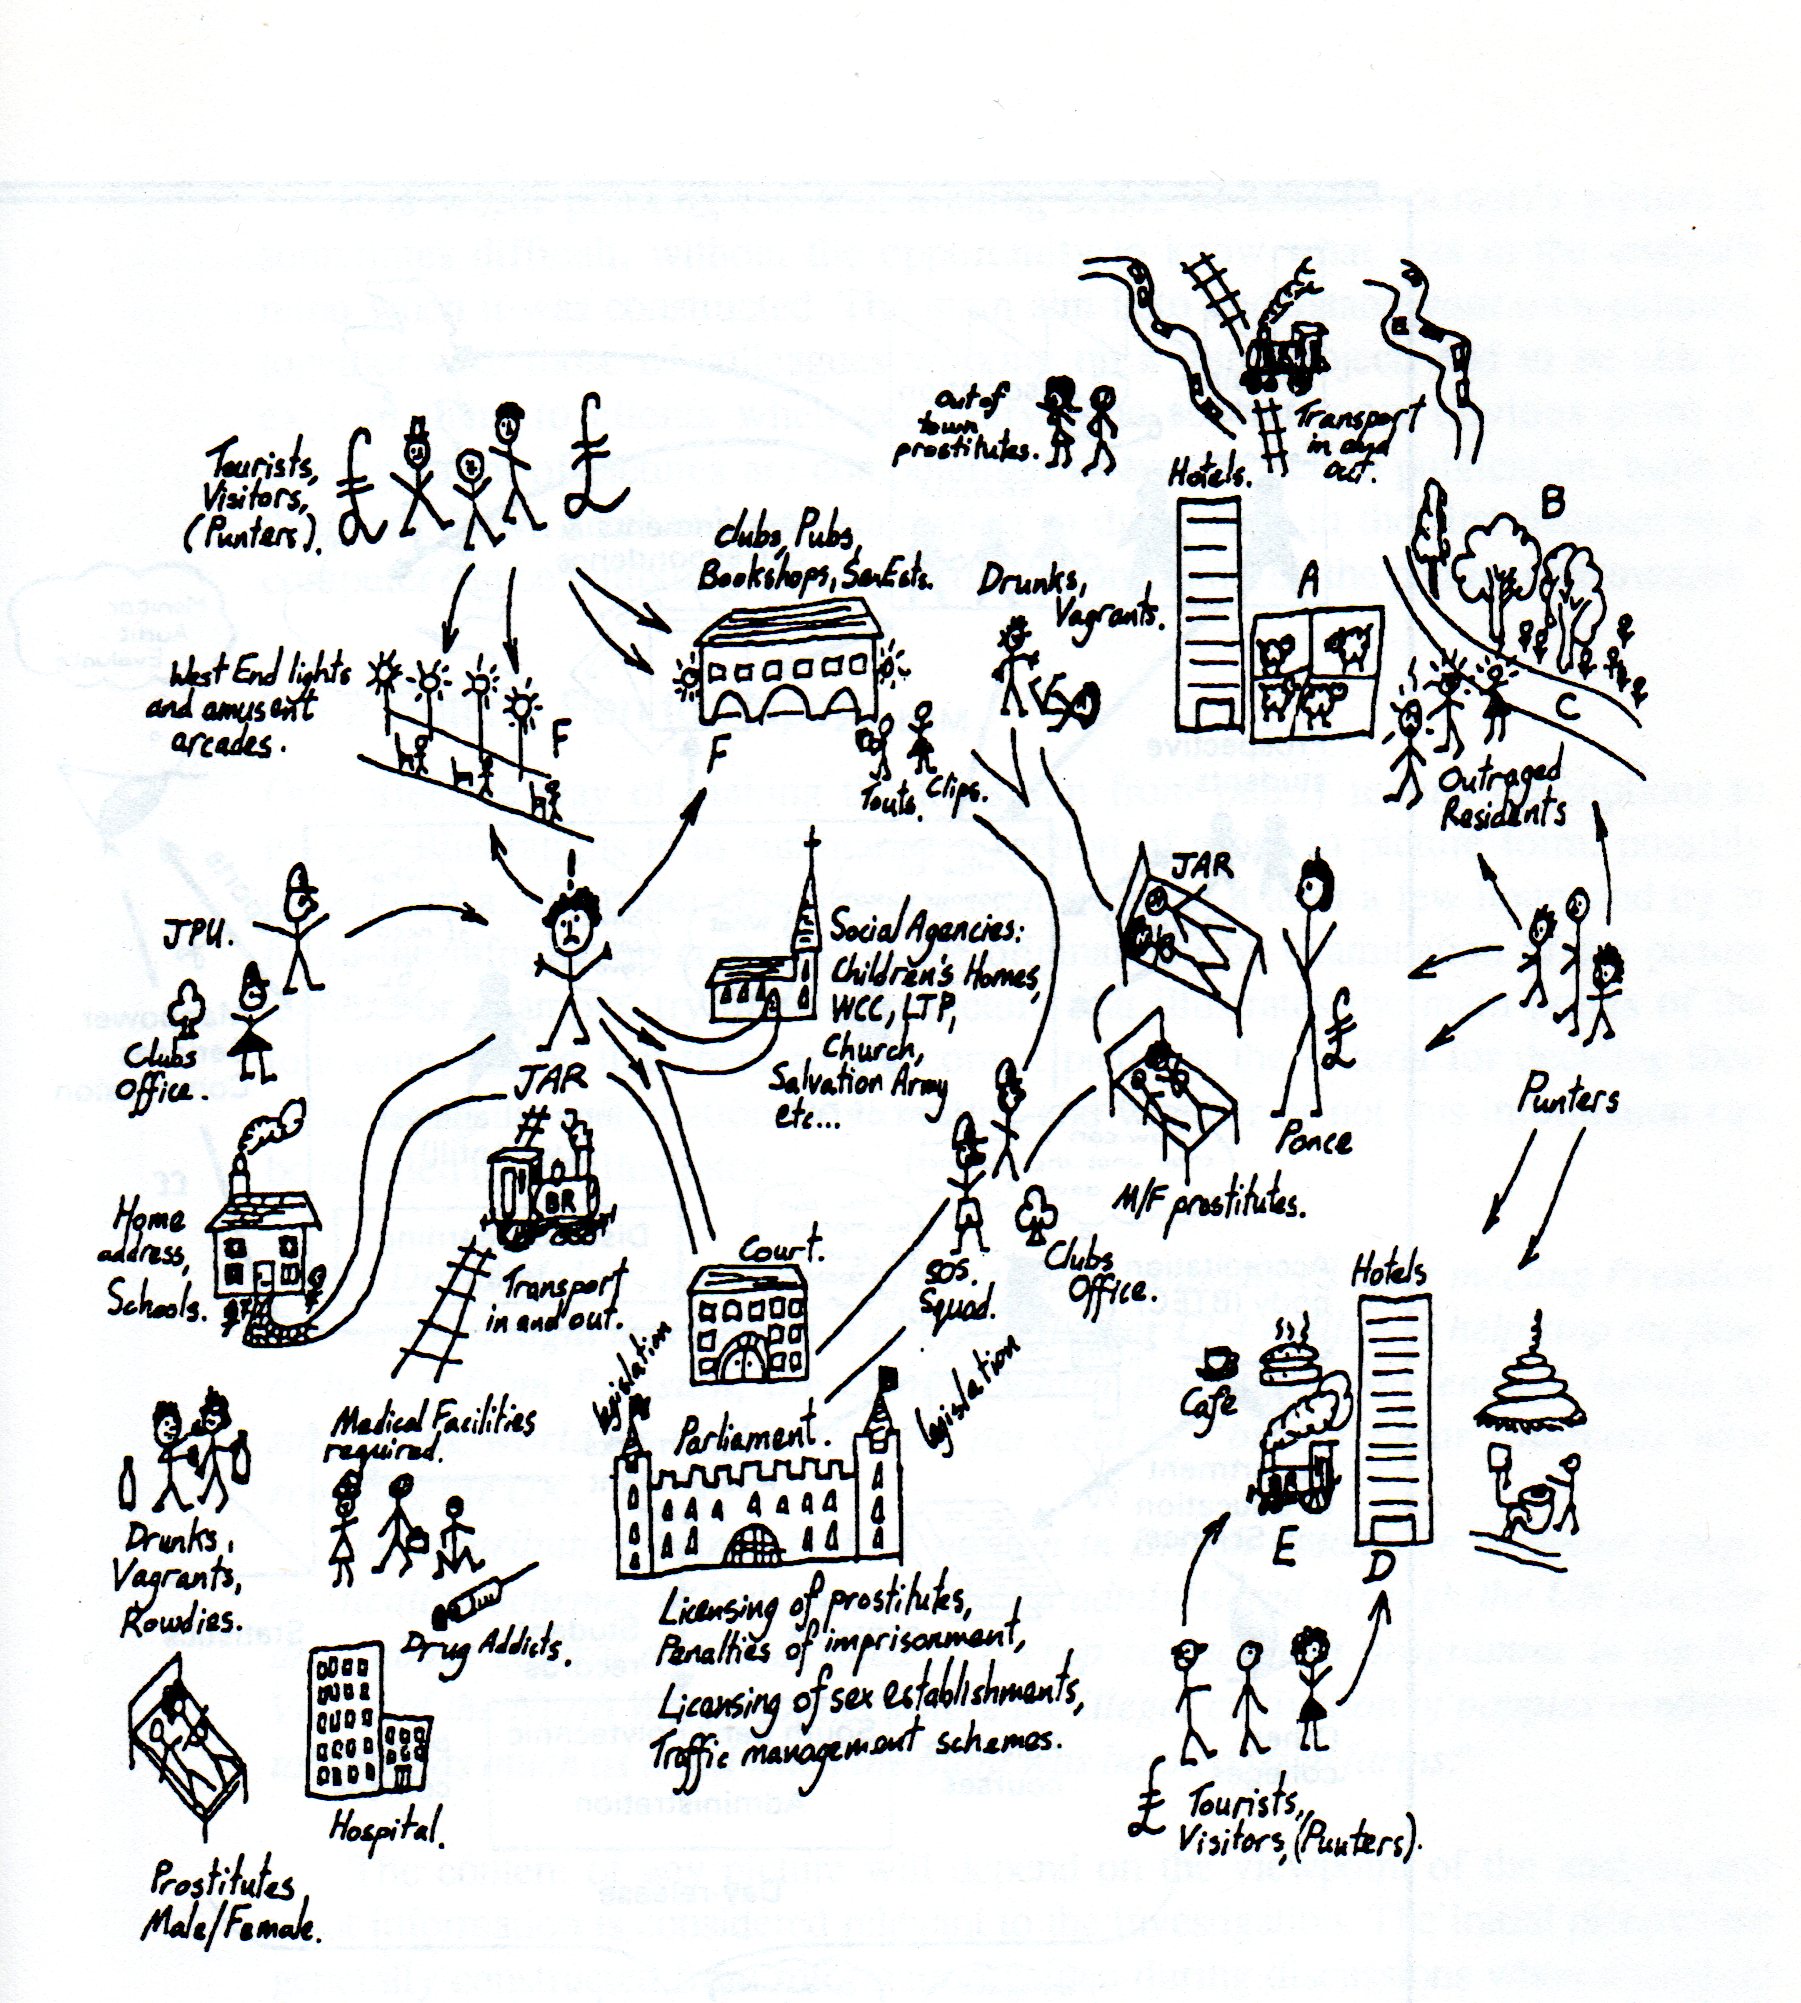 out of
town
prostitutes.
Transport
in and
out.
Hotels.
Tourists,
Visitors,
(Punters).
£
£
Clubs, Pubs,
Bookshops, Sex Ests.
Drunks,
Vagrants.
A
B
C
West End lights
and amusent
arcades.
F
F
Touts.
Clips.
Outraged
Residents
JPU.
JAR
!
Social Agencies:
Children's Homes,
WCC, LTP,
Church,
Salvation Army
etc...
JAR
£
Clubs
Office.
Punters
Ponce
M/F prostitutes.
BR
Home
address,
Schools.
Transport
in and out.
Court.
SOS.
Squad.
Clubs
Office.
Hotels
Cafe
legislation
legislation
Medical Facilities
required.
Parliament.
Drunks,
Vagrants,
Rowdies.
E
D
Drug Addicts.
Licensing of prostitutes,
Penalties of imprisonment,
Licensing of sex establishments,
Traffic management schemes.
Hospital.
£
Tourists,
Visitors, (Punters).
Prostitutes,
Male/Female.